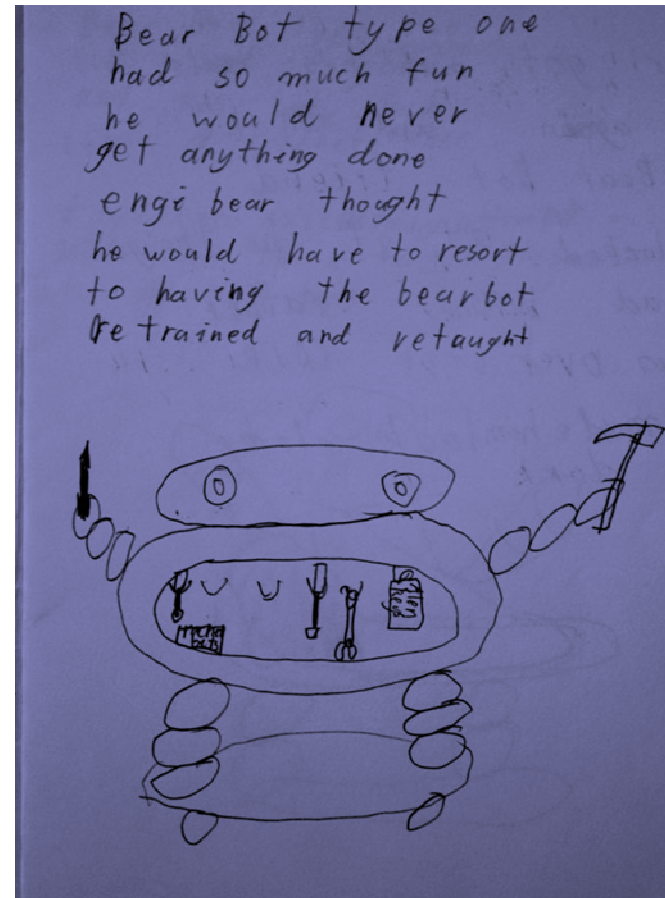 Bear Bot type one
had so much fun
he would never
get anything done
engi bear thought
he would have to resort
to having the bearbot
retrained and retaught